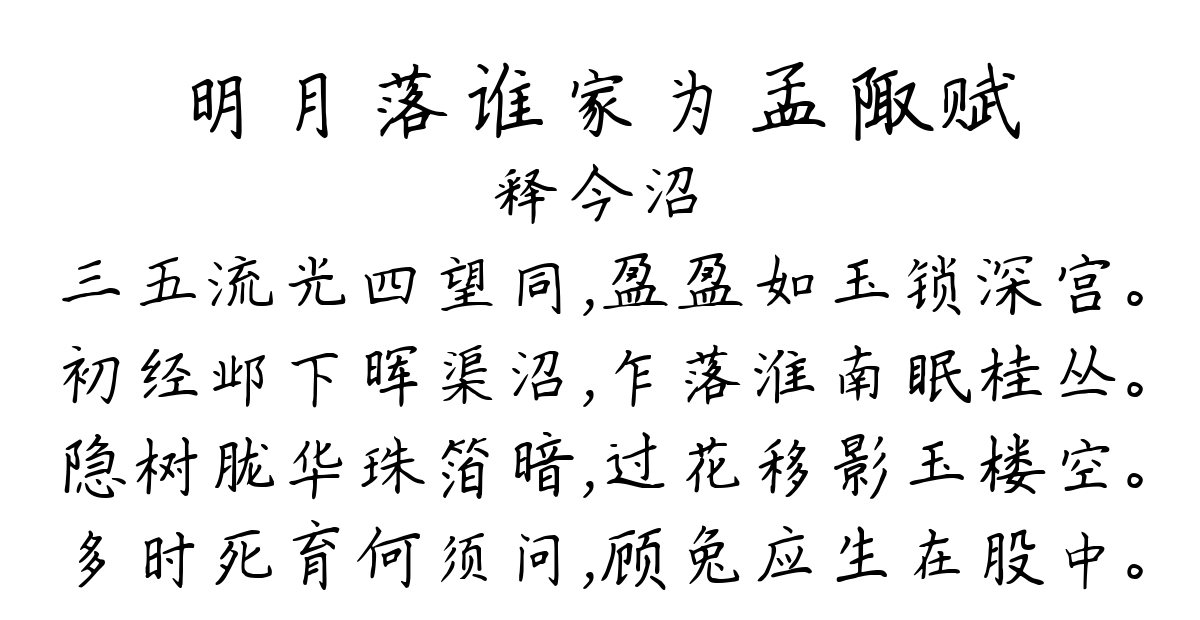 明月落谁家为孟陬赋
释今沼
三五流光四望同,盈盈如玉锁深宫。
初经邺下晖渠沼,乍落淮南眠桂丛。
隐树胧华珠箔暗,过花移影玉楼空。
多时死育何须问,顾兔应生在股中。